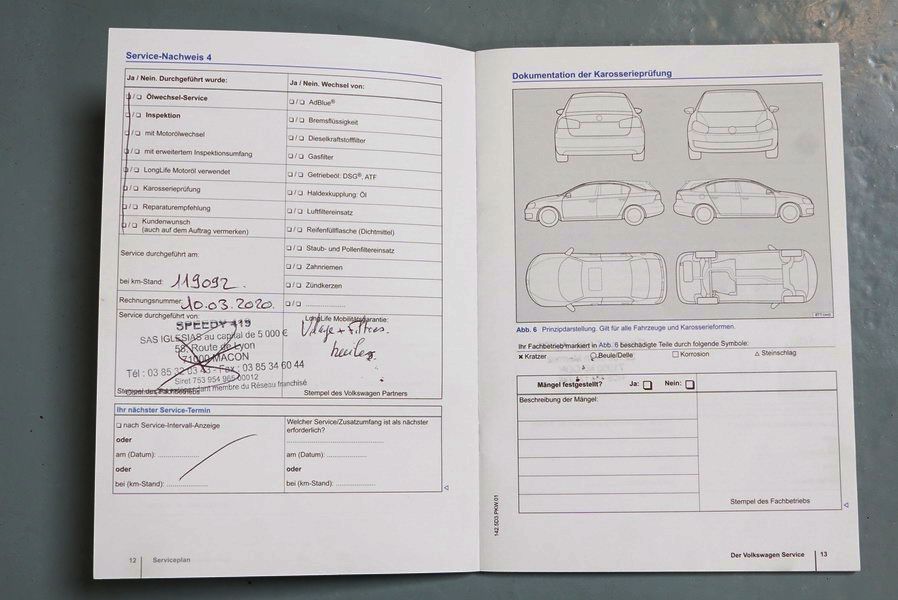 Service-Nachweis 4
Ja / Nein. Durchgeführt wurde:
❏ / ❏ Ölwechsel-Service
❏ / ❏ Inspektion
❏ / ❏ mit Motorölwechsel
❏ / ❏ mit erweitertem Inspektionsumfang
❏ / ❏ LongLife Motoröl verwendet
❏ / ❏ Karosserieprüfung
❏ / ❏ Reparaturempfehlung
❏ / ❏ Kundenwunsch
(auch auf dem Auftrag vermerken)
Service durchgeführt am:
bei km-Stand: 119092.
Rechnungsnummer: 10.03.2020.
Service durchgeführt von:
SPEEDY 419
SAS IGLESIAS au capital de 5 000 €
58, Route de Lyon
71000 MACON
Tél : 03 85 - Fax : 03 85 34 60 44
Siret 753 954 965 00012
indépendant membre du Réseau franchisé
Stempel des Fachbetriebs
Ja / Nein. Wechsel von:
❏ / ❏ AdBlue®
❏ / ❏ Bremsflüssigkeit
❏ / ❏ Dieselkraftstofffilter
❏ / ❏ Gasfilter
❏ / ❏ Getriebeöl: DSG®, ATF
❏ / ❏ Haldexkupplung: Öl
❏ / ❏ Luftfiltereinsatz
❏ / ❏ Reifenfüllflasche (Dichtmittel)
❏ / ❏ Staub- und Pollenfiltereinsatz
❏ / ❏ Zahnriemen
❏ / ❏ Zündkerzen
❏ / ❏ ....................
LongLife Mobilitätsgarantie:
Stempel des Volkswagen Partners
Ihr nächster Service-Termin
❏ nach Service-Intervall-Anzeige
oder
am (Datum): ....................
oder
bei (km-Stand): ....................
Welcher Service/Zusatzumfang ist als nächster
erforderlich?
am (Datum): ....................
oder
bei (km-Stand): ....................
12 Serviceplan
Dokumentation der Karosserieprüfung
Abb. 6 Prinzipdarstellung. Gilt für alle Fahrzeuge und Karosserieformen.
Ihr Fachbetrieb markiert in Abb. 6 beschädigte Teile durch folgende Symbole:
✕ Kratzer ○ Beule/Delle □ Korrosion △ Steinschlag
Mängel festgestellt? Ja: ❏ Nein: ❏
Beschreibung der Mängel:
Stempel des Fachbetriebs
142.5D3.PKW.01
Der Volkswagen Service 13